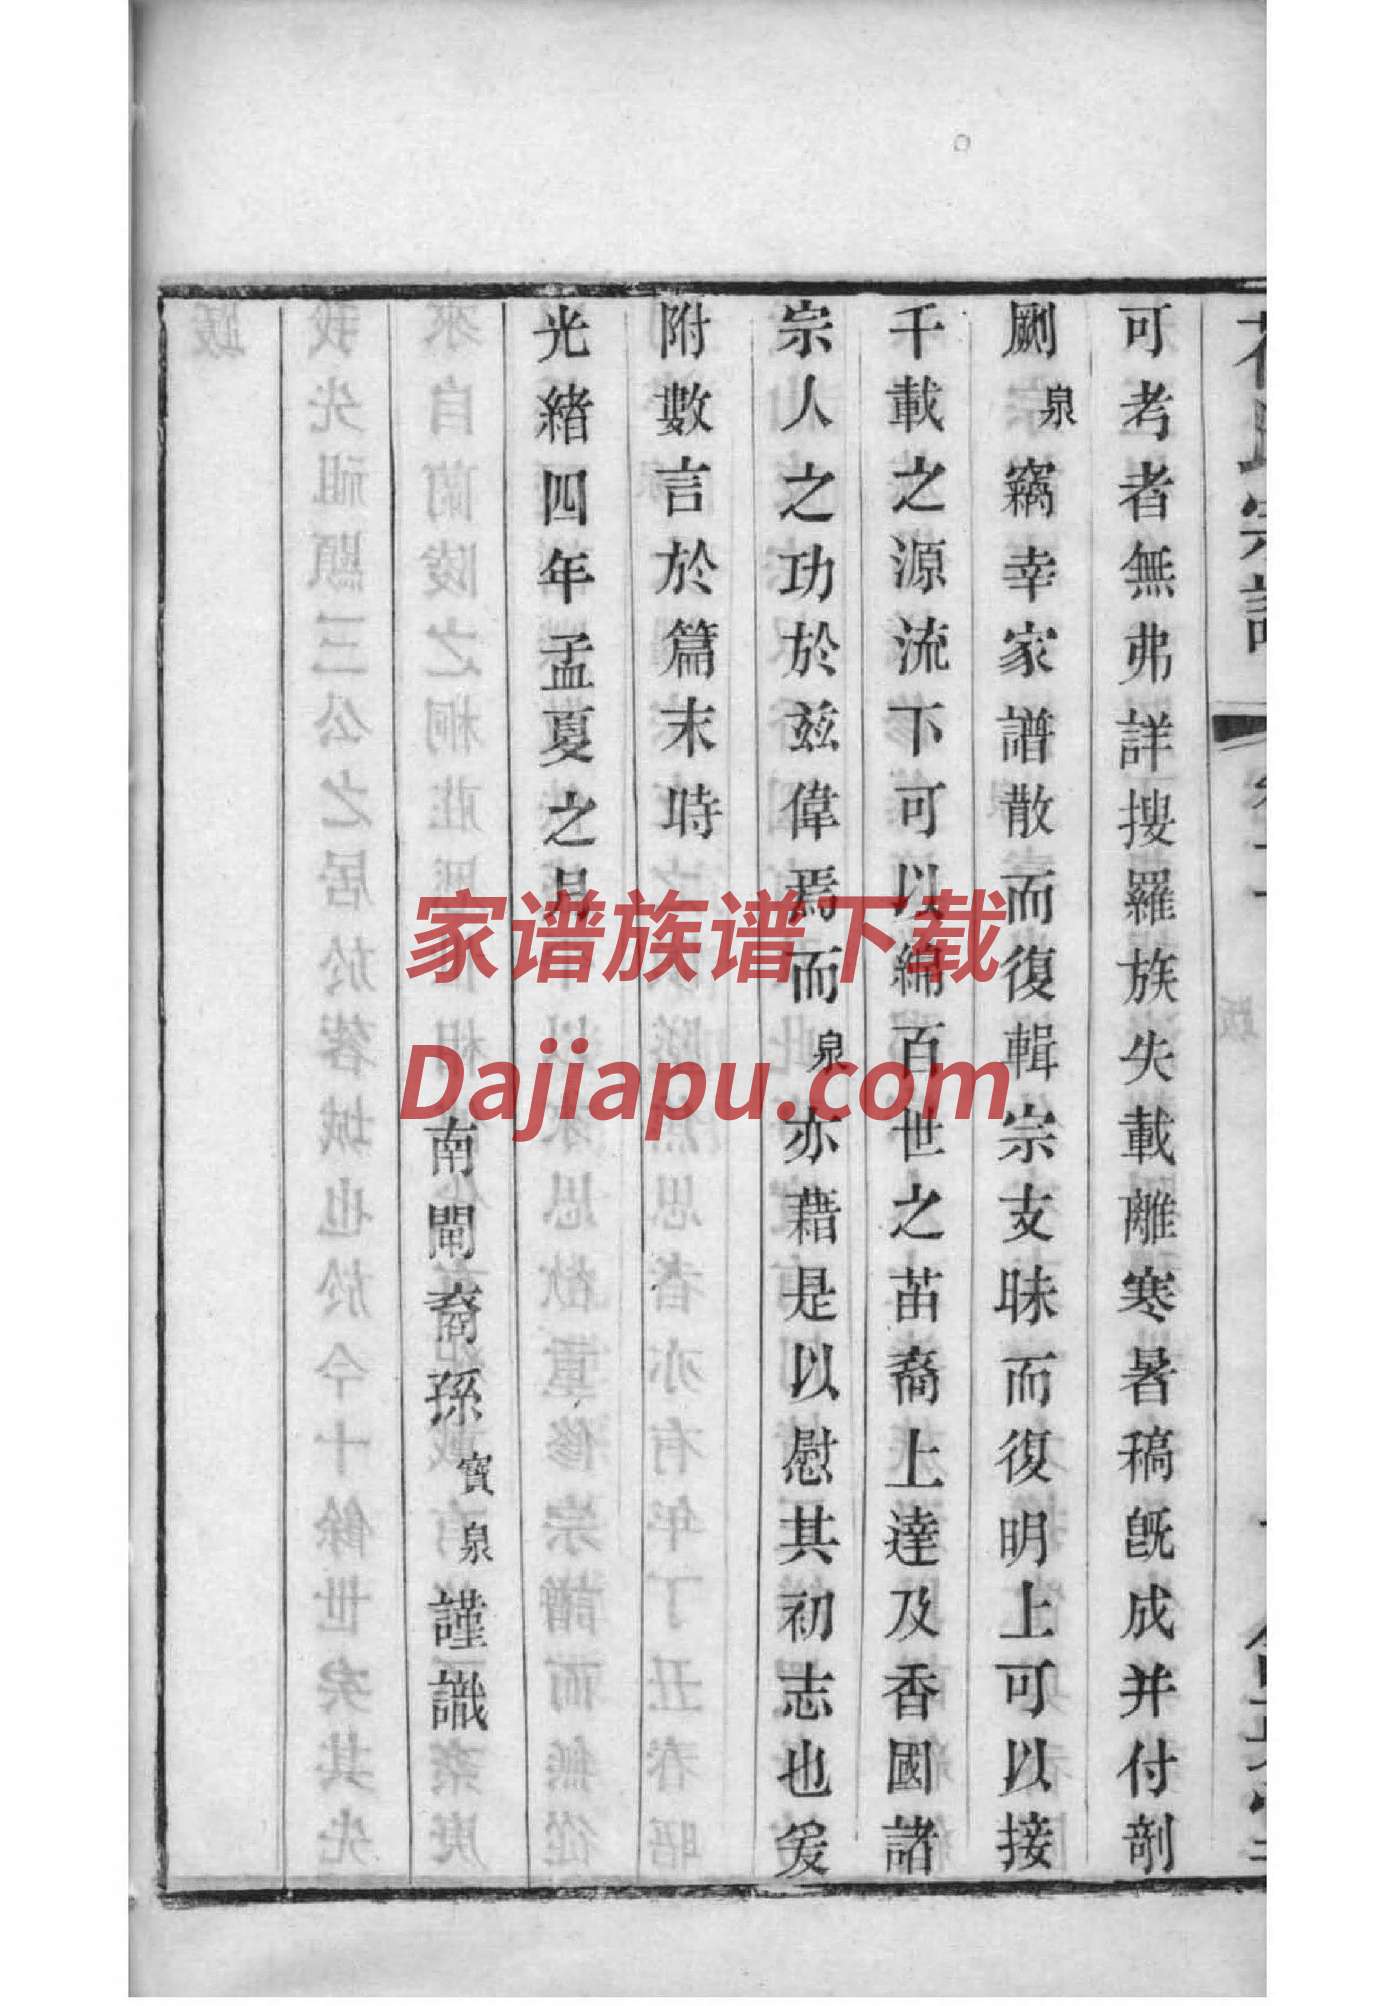 宗譜
可考者無弗詳搜羅族失載離寒暑稿旣成并付剞
劂泉竊幸家譜散而復輯宗支昧而復明上可以接
千載之源流下可以綿百世之苗裔上達及香國諸
宗人之功於茲偉焉而泉亦藉是以慰其初志也爰
附數言於篇末時
光緒四年孟夏之月
南閘裔孫寶泉謹識
家谱族谱下载
Dajiapu.com